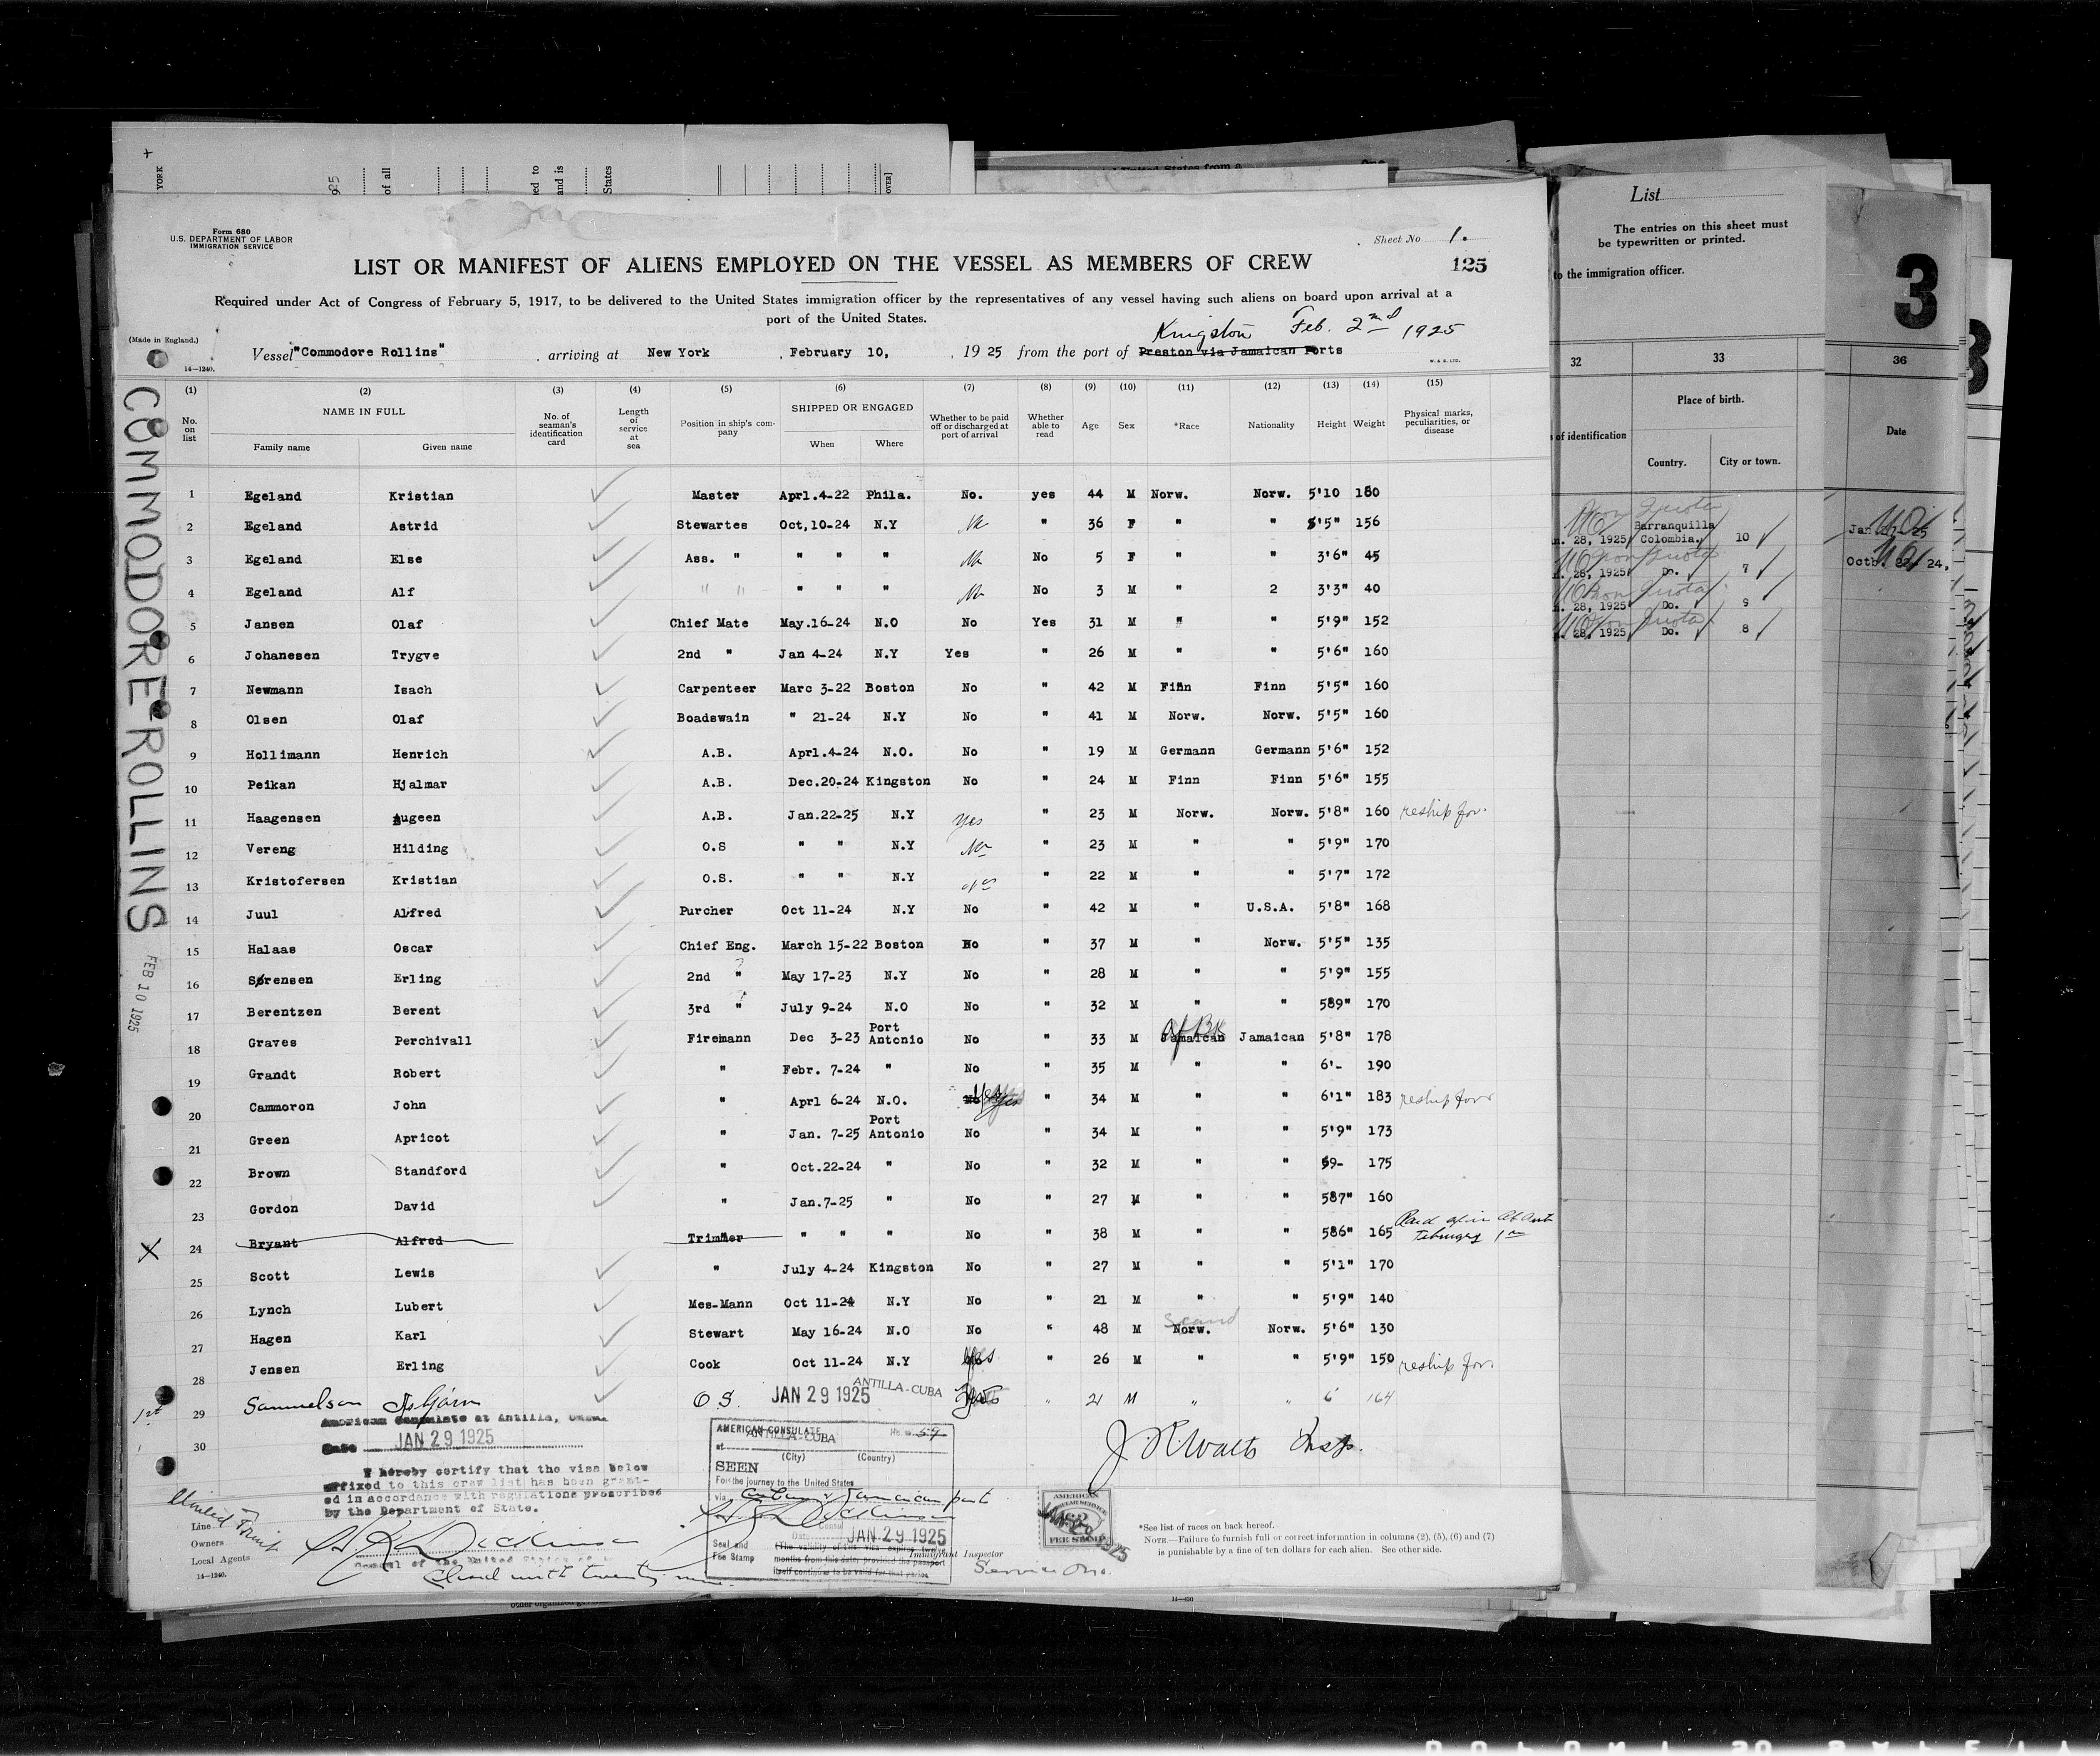 YORK
925
of all
ed to
and is
States
OVER]
United States from a
Form 680
U.S. DEPARTMENT OF LABOR
IMMIGRATION SERVICE
Sheet No. 1.
LIST OR MANIFEST OF ALIENS EMPLOYED ON THE VESSEL AS MEMBERS OF CREW
125
Required under Act of Congress of February 5, 1917, to be delivered to the United States immigration officer by the representatives of any vessel having such aliens on board upon arrival at a
port of the United States.
Kingston Feb. 2nd 1925
(Made in England.)
Vessel "Commodore Rollins" , arriving at New York , February 10, , 1925 from the port of Preston via Jamaican Ports
14—1240.
W. & S. LTD.
COMMODORE ROLLINS
FEB 10 1925
(1) (2) (3) (4) (5) (6) (7) (8) (9) (10) (11) (12) (13) (14) (15)
No. on list NAME IN FULL No. of seaman's identification card Length of service at sea Position in ship's company SHIPPED OR ENGAGED Whether to be paid off or discharged at port of arrival Whether able to read Age Sex *Race Nationality Height Weight Physical marks, peculiarities, or disease
Family name Given name When Where
1 Egeland Kristian Master Aprl.4-22 Phila. No. yes 44 M Norw. Norw. 5'10 180
2 Egeland Astrid Stewartes Oct,10-24 N.Y No " 36 F " " 5'5" 156
3 Egeland Else Ass. " " " " No No 5 F " " 3'6" 45
4 Egeland Alf " " " " " No No 3 M " 2 3'3" 40
5 Jansen Olaf Chief Mate May.16-24 N.O No Yes 31 M " " 5'9" 152
6 Johanesen Trygve 2nd " Jan 4-24 N.Y Yes " 26 M " " 5'6" 160
7 Newmann Isach Carpenteer Marc 3-22 Boston No " 42 M Finn Finn 5'5" 160
8 Olsen Olaf Boadswain " 21-24 N.Y No " 41 M Norw. Norw. 5'5" 160
9 Hollimann Henrich A.B. Aprl.4-24 N.O. No " 19 M Germann Germann 5'6" 152
10 Peikan Hjalmar A.B. Dec.20-24 Kingston No " 24 M Finn Finn 5'6" 155
11 Haagensen Augeen A.B. Jan.22-25 N.Y Yes " 23 M Norw. Norw. 5'8" 160 reship for.
12 Vereng Hilding O.S " " N.Y No " 23 M " " 5'9" 170
13 Kristofersen Kristian O.S. " " N.Y " 22 M " " 5'7" 172
14 Juul Alfred Purcher Oct 11-24 N.Y No " 42 M " U.S.A. 5'8" 168
15 Halaas Oscar Chief Eng. March 15-22 Boston No " 37 M " Norw. 5'5" 135
16 Sørensen Erling 2nd " May 17-23 N.Y No " 28 M " " 5'9" 155
17 Berentzen Berent 3rd " July 9-24 N.O No " 32 M " " 589" 170
18 Graves Perchivall Firemann Dec 3-23 Port Antonio No " 33 M Jamaican Af Blk Jamaican 5'8" 178
19 Grandt Robert " Febr. 7-24 " No " 35 M " " 6'- 190
20 Cammoron John " Aprl 6-24 N.O. No Yes " 34 M " " 6'1" 183 reship for
21 Green Apricot " Jan. 7-25 Port Antonio No " 34 M " " 5'9" 173
22 Brown Standford " Oct.22-24 " No " 32 M " " 59- 175
23 Gordon David " Jan.7-25 " No " 27 M " " 587" 160
24 Bryant Alfred Trimmer " " " No " 38 M " " 586" 165 Paid off in 1st
25 Scott Lewis " July 4-24 Kingston No " 27 M " " 5'1" 170
26 Lynch Lubert Mes-Mann Oct 11-24 N.Y No " 21 M " " 5'9" 140
27 Hagen Karl Stewart May 16-24 N.O No " 48 M Scand Norw. Norw. 5'6" 130
28 Jensen Erling Cook Oct 11-24 N.Y Yes " 26 M " " 5'9" 150 reship for.
1st 29 Samuelsen Asbjörn O.S. JAN 29 1925 ANTILLA-CUBA Yes " 21 M " " 6' 164
30
American Consulate at Antilla, Cuba
Date JAN 29 1925
I hereby certify that the visa below
affixed to this crew list has been grant-
ed in accordance with regulations prescribed
by the Department of State.
Consul of the United States of
closed with twenty nine.
United Fruit
Line
Owners
Local Agents
14—1240.
AMERICAN CONSULATE No. 59
at ANTILLA-CUBA
(City) (Country)
SEEN
For the journey to the United States
via Cuban & Jamaican ports
Consul
Date JAN 29 1925
Seal and Fee Stamp
(The validity of this visa expires twelve
months from this date, provided the passport
itself continues to be valid for that period
J. R. Walts Insp.
Immigrant Inspector
AMERICAN
CONSULAR SERVICE
FEE STAMP
*See list of races on back hereof.
NOTE—Failure to furnish full or correct information in columns (2), (5), (6) and (7)
is punishable by a fine of ten dollars for each alien. See other side.
14—430
List
The entries on this sheet must
be typewritten or printed.
to the immigration officer.
32 33
Place of birth.
of identification
Country. City or town.
Non Quota
28, 1925 Barranquilla Colombia. 10
28, 1925 Do. 7
28, 1925 Do. 9
28, 1925 Do. 8
3
36
Date
Jan 25
Octb. 22/ 24.